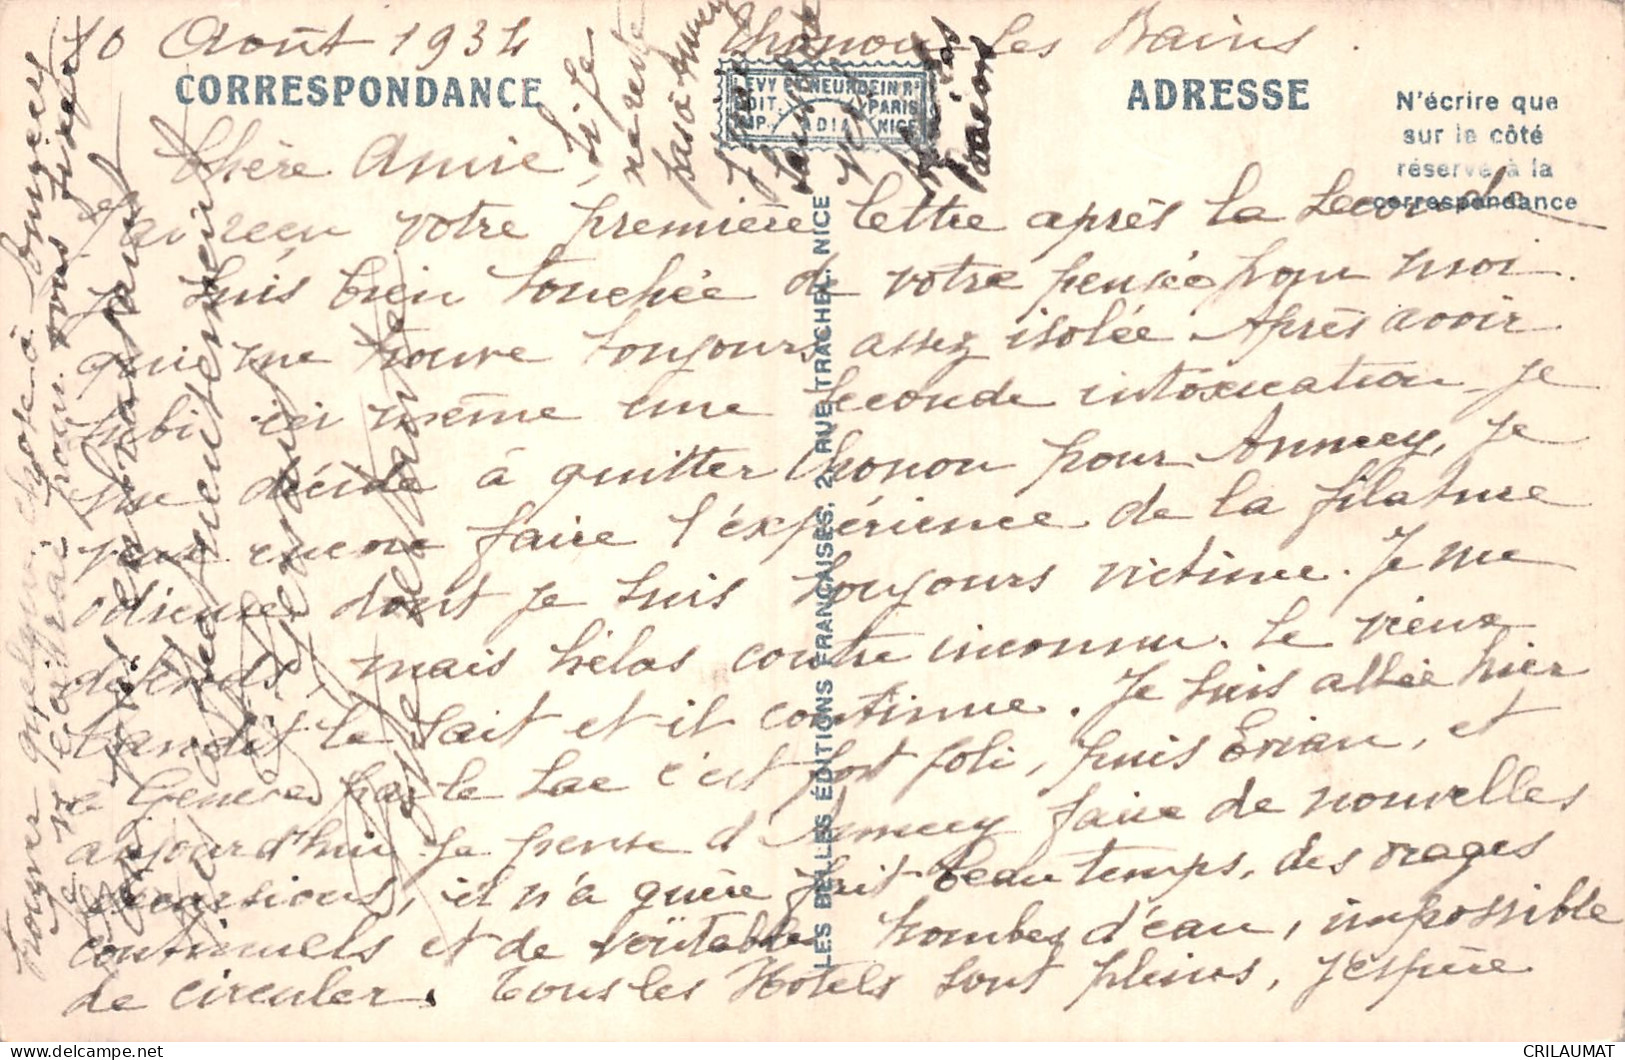 10 Août 1934 Thonon les Bains.
CORRESPONDANCE
LEVY & NEURDEIN Rs
EDIT. PARIS
IMP. ADIA NICE
ADRESSE
N'écrire que
sur le côté
réservé à la
correspondance
Chère Amie,
J'ai reçu votre première lettre après la seconde
Je suis bien touchée de votre pensée pour moi
qui me trouve toujours assez isolée. Après avoir
subi ici même une seconde intoxication je
me décide à quitter Thonon pour Annecy, je
veux encore faire l'expérience de la filature
odieuse dont je suis toujours victime. Je me
défends, mais hélas contre inconnu. Le vieux
bandit le sait et il continue. Je suis allée hier
à Genève par le Lac c'est fort joli, puis Evian, et
aujourd'hui je pense d'Annecy faire de nouvelles
excursions, il n'a guère fait beau temps, des orages
continuels et de véritables trombes d'eau, impossible
de circuler. Tous les Hotels sont pleins, j'espère
trouver quelque chose à Annecy
Je vous écrirai pour vous fixer
Si je
ne reste
pas à Annecy
LES BELLES ÉDITIONS FRANÇAISES, 2, RUE TRACHEL, NICE
CRILAUMAT